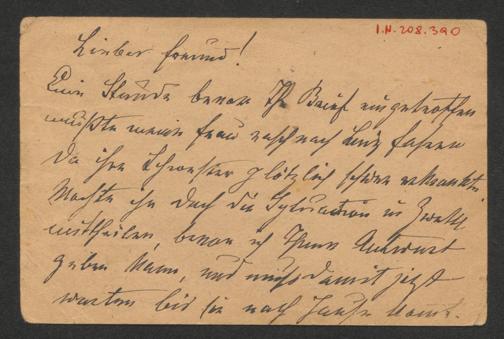 I.N. 208.390
Lieber Freund!
Eine Stunde bevor Ihr Brief eingetroffen
mußte meine Frau rasch nach Linz fahren
da ihre Schwester plötzlich schwer erkrankte.
Möchte ihr doch die Situation in
mittheilen, bevor ich Ihnen Antwort
geben kann, und muß damit jetzt
warten bis sie nach Hause kommt.